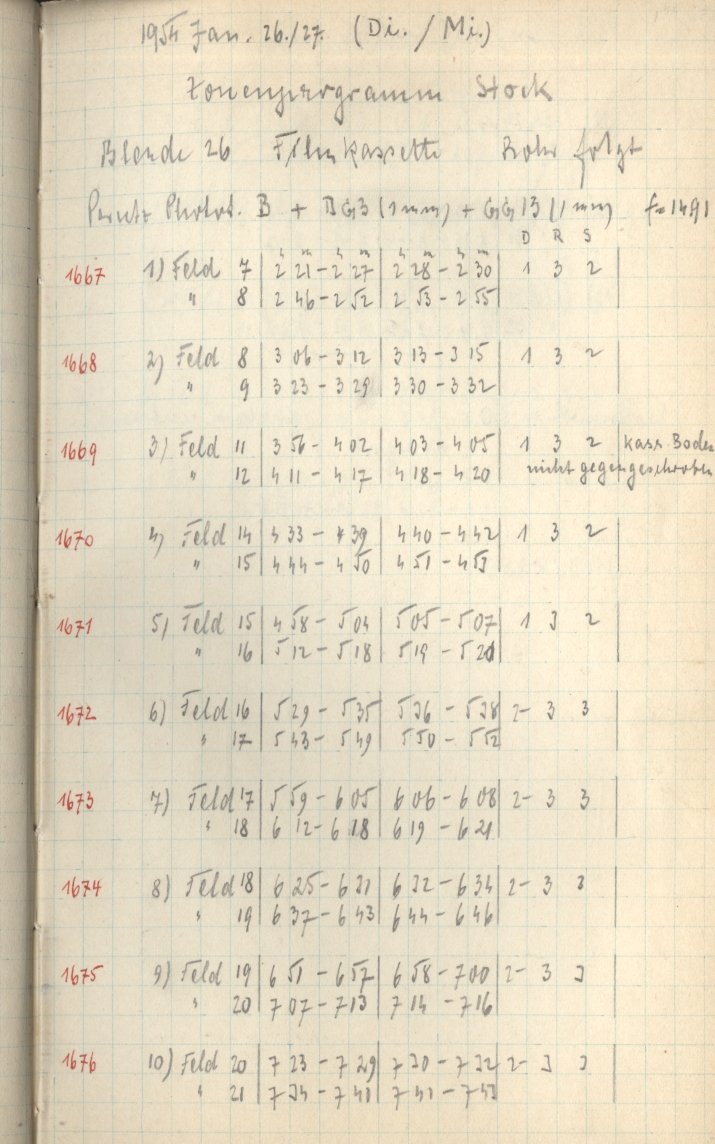 1954 Jan. 26./27. (Di. / Mi.)
Zonenprogramm Stock
Blende 26 Filmkassette Rohr folgt
Perutz Photot. B + BG3 (1mm) + GG 13 (1mm) f=1491
D R S
h m h m h m
1667 1) Feld 7 | 2 21 - 2 27 | 2 28 - 2 30 | 1 3 2 |
" 8 | 2 46 - 2 52 | 2 53 - 2 55 |
1668 2) Feld 8 | 3 06 - 3 12 | 3 13 - 3 15 | 1 3 2 |
" 9 | 3 23 - 3 29 | 3 30 - 3 32 |
1669 3) Feld 11 | 3 56 - 4 02 | 4 03 - 4 05 | 1 3 2 | Kass. Boden
" 12 | 4 11 - 4 17 | 4 18 - 4 20 nicht gegengeschroben
1670 4) Feld 14 | 4 33 - 4 39 | 4 40 - 4 42 | 1 3 2 |
" 15 | 4 44 - 4 50 | 4 51 - 4 53
1671 5) Feld 15 | 4 58 - 5 04 | 5 05 - 5 07 | 1 3 2 |
" 16 | 5 12 - 5 18 | 5 19 - 5 21 |
1672 6) Feld 16 | 5 29 - 5 35 | 5 36 - 5 38 | 2- 3 3 |
" 17 | 5 43 - 5 49 | 5 50 - 5 52
1673 7) Feld 17 | 5 59 - 6 05 | 6 06 - 6 08 | 2- 3 3 |
" 18 | 6 12 - 6 18 | 6 19 - 6 21 |
1674 8) Feld 18 | 6 25 - 6 31 | 6 32 - 6 34 | 2- 3 3 |
" 19 | 6 37 - 6 43 | 6 44 - 6 46 |
1675 9) Feld 19 | 6 51 - 6 57 | 6 58 - 7 00 | 2- 3 3 |
" 20 | 7 07 - 7 13 | 7 14 - 7 16 |
1676 10) Feld 20 | 7 23 - 7 29 | 7 30 - 7 32 | 2- 3 3 |
" 21 | 7 34 - 7 40 | 7 41 - 7 43